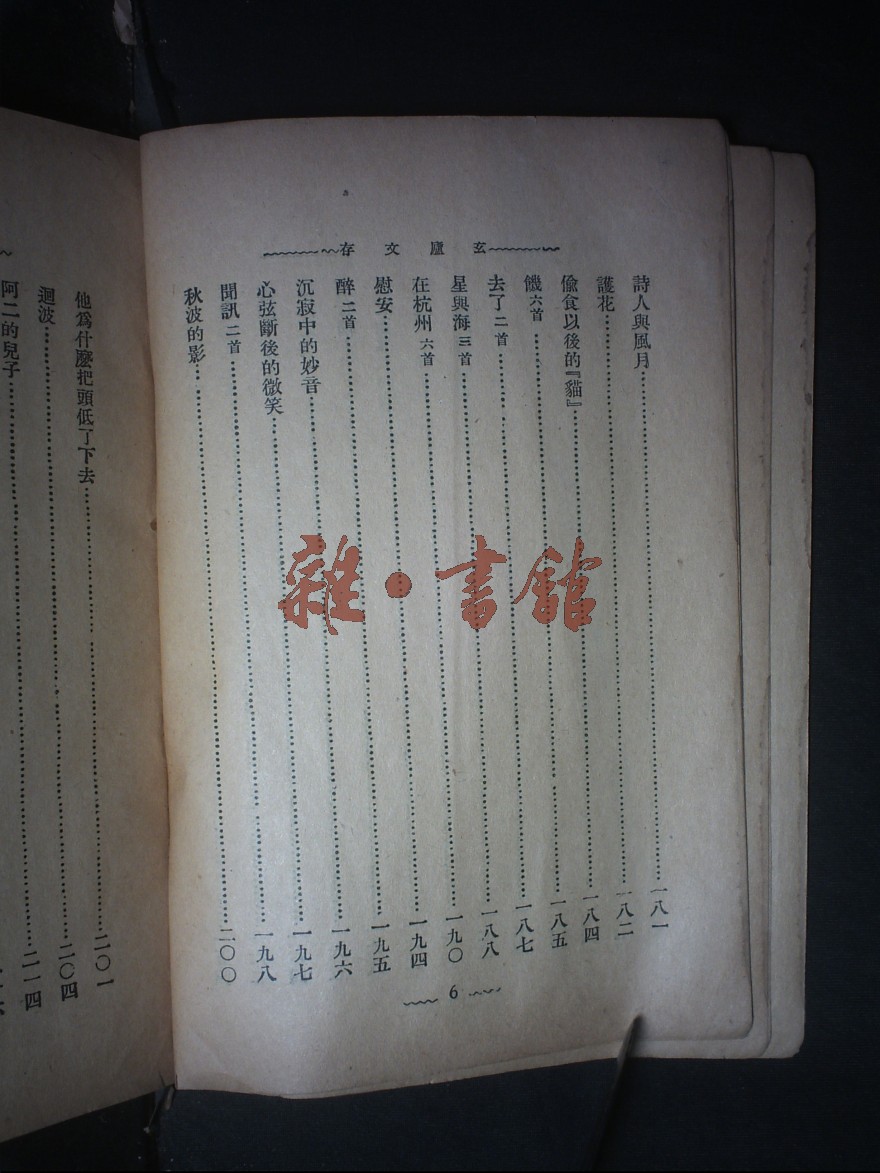 玄廬文存
詩人與風月……一八一
護花……一八二
偸食以後的『貓』……一八四
饑 六首……一八五
去了 二首……一八七
星與海 三首……一八八
在杭州 六首……一九〇
慰安……一九四
醉 二首……一九五
沉寂中的妙音……一九六
心弦斷後的微笑……一九七
聞訊 二首……一九八
秋波的影……二〇〇
6
他爲什麼把頭低了下去……二〇一
迴波……二〇四
阿二的兒子……二一四
雜·書館